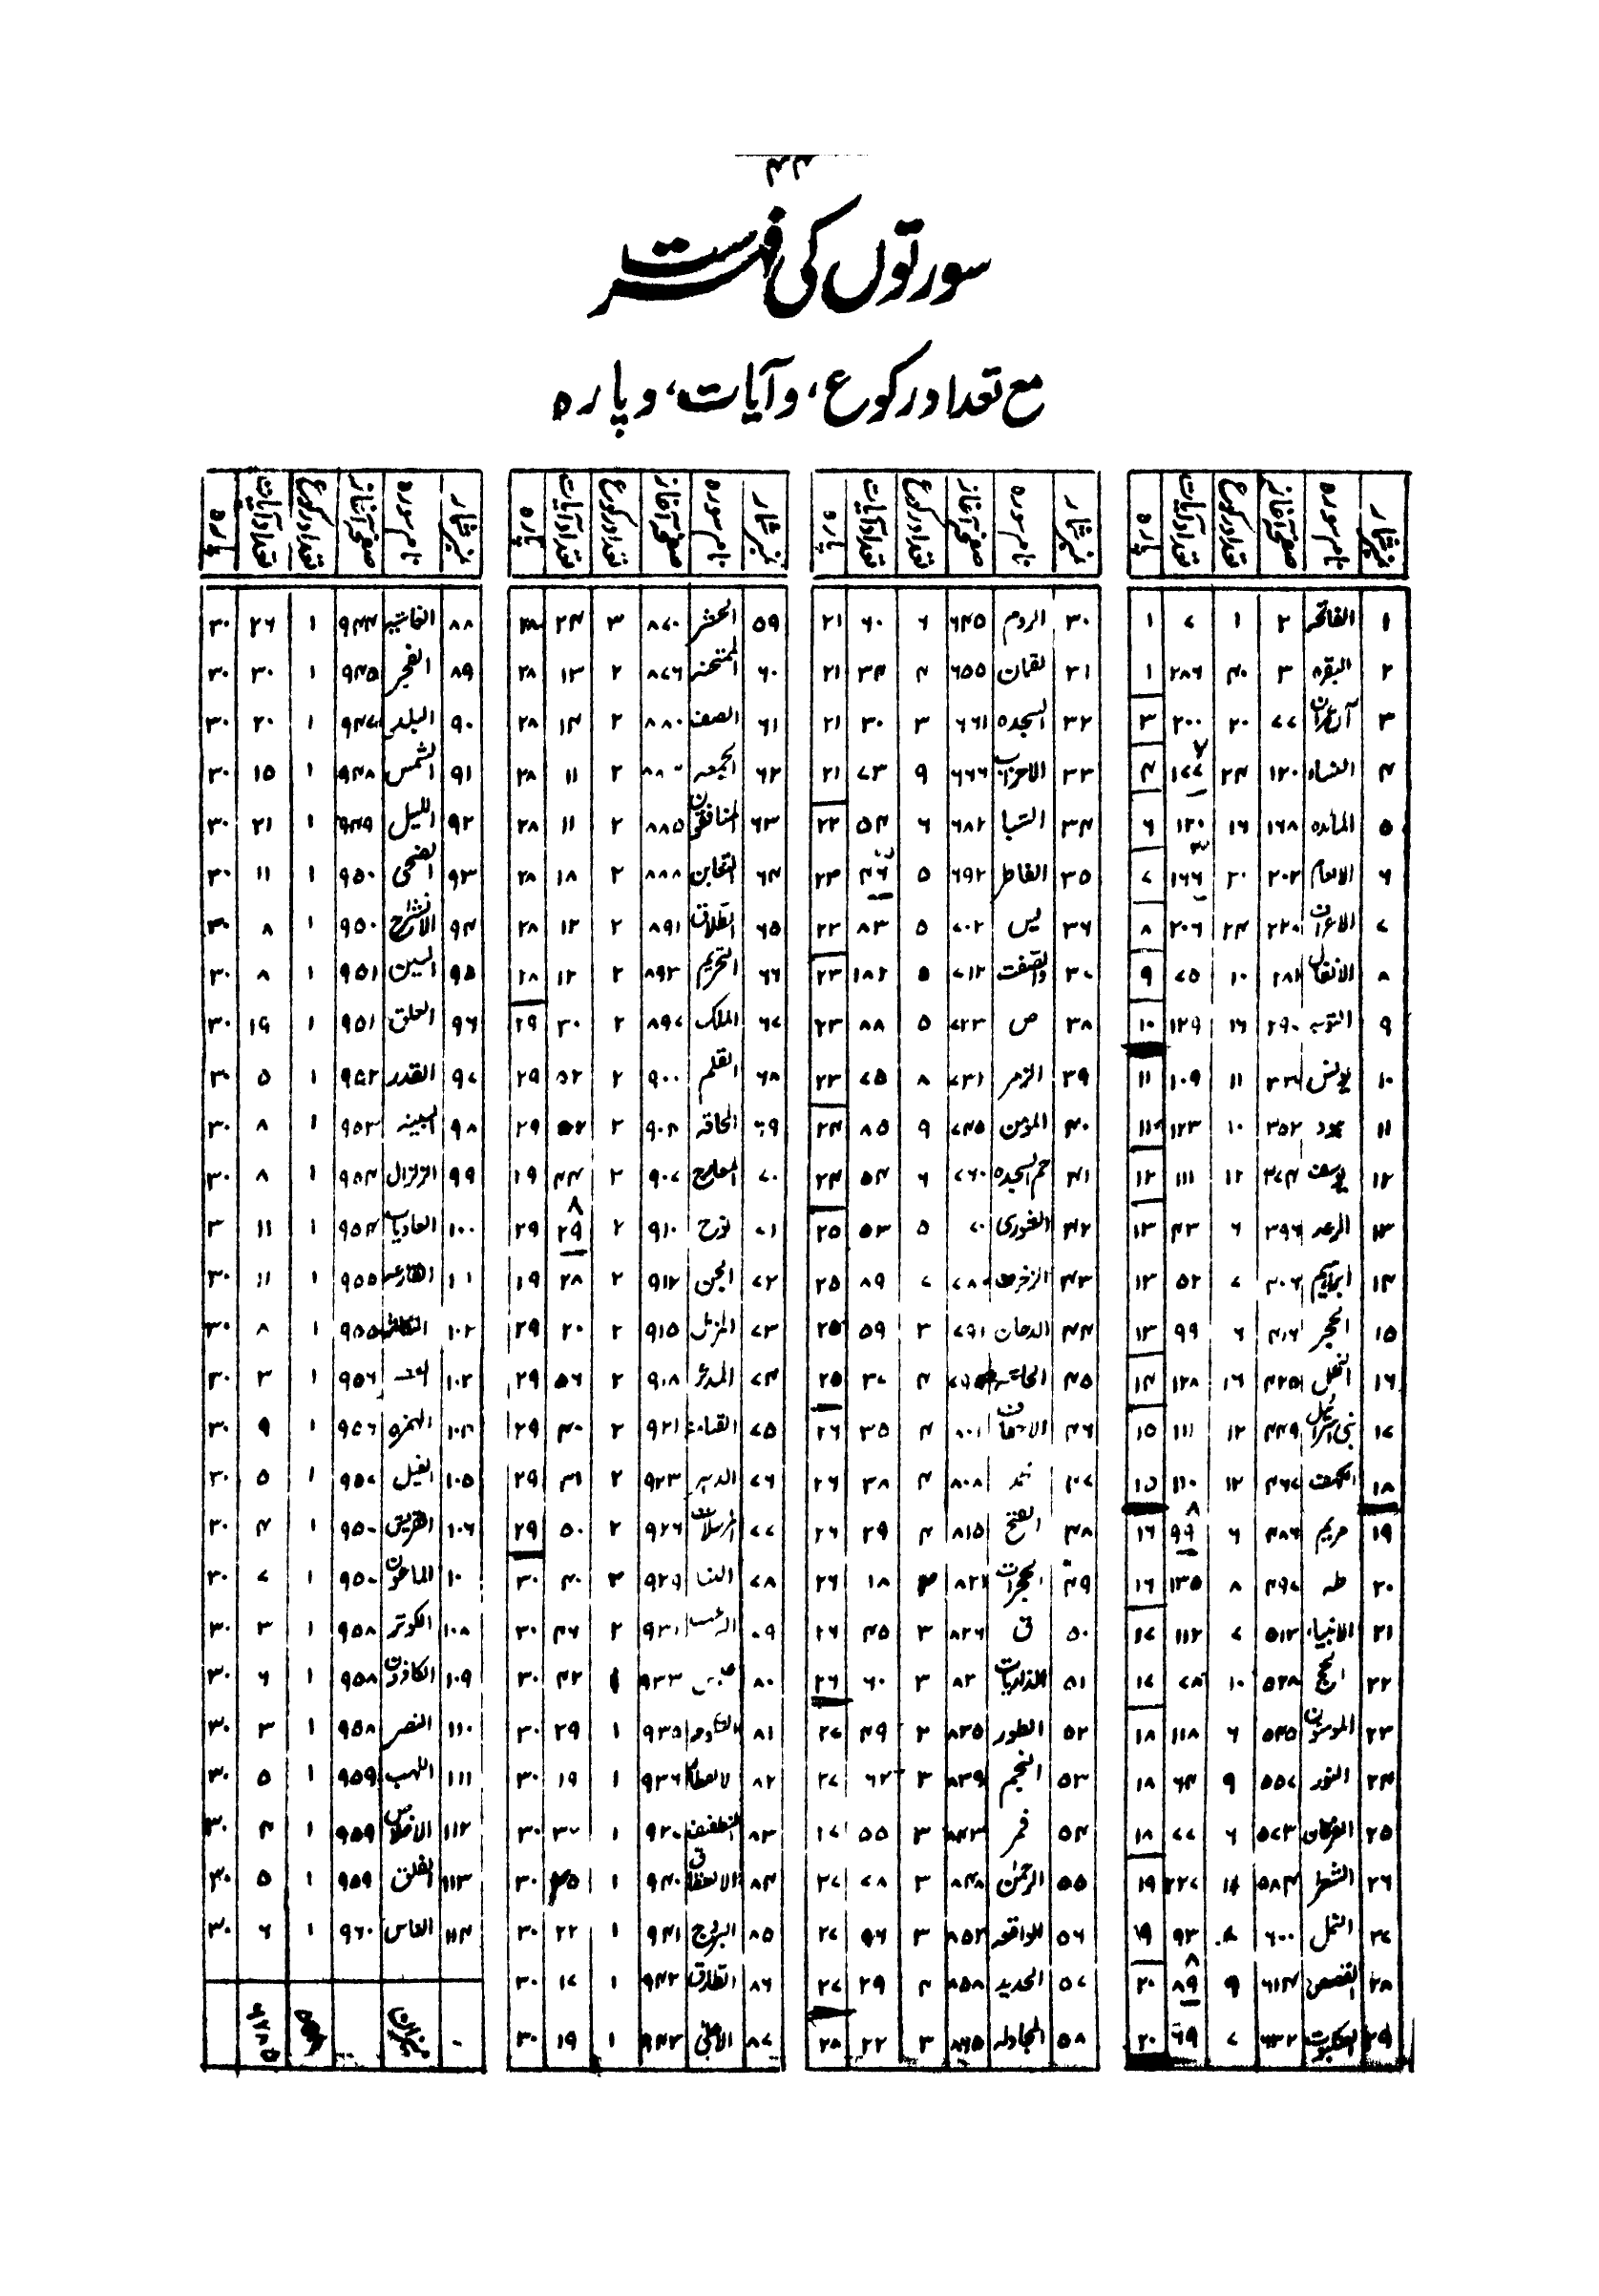 ۴۴
سورتوں کی فہرست
مع تعداد رکوع، وآیات، وپارہ
نمبر شمار نام سورہ صفحۂ آغاز تعداد رکوع تعداد آیات پارہ
۱ الفاتحہ ۲ ۱ ۷ ۱
۲ البقرہ ۳ ۴۰ ۲۸۶ ۱
۳ آل عمران ۷۷ ۲۰ ۲۰۰ ۳
۴ النساء ۱۲۰ ۲۴ ۱۷۷ ۴
۵ المائدہ ۱۶۸ ۱۶ ۱۲۰ ۶
۶ الانعام ۲۰۲ ۲۰ ۱۶۶ ۷
۷ الاعراف ۲۴ ۲۰۶ ۸
۸ الأنفال ۲۸۱ ۱۰ ۷۵ ۹
۹ التوبہ ۲۹۰ ۱۶ ۱۲۹ ۱۰
۱۰ یونس ۱۱ ۱۰۹ ۱۱
۱۱ ہود ۳۵۲ ۱۰ ۱۲۳ ۱۱
۱۲ یوسف ۳۷۴ ۱۲ ۱۱۱ ۱۲
۱۳ الرعد ۳۹۶ ۶ ۴۳ ۱۳
۱۴ ابراہیم ۴۰۶ ۷ ۵۲ ۱۳
۱۵ الحجر ۴۱۶ ۶ ۹۹ ۱۳
۱۶ النحل ۴۲۵ ۱۶ ۱۲۸ ۱۴
۱۷ بنی اسرائیل ۴۴۹ ۱۲ ۱۱۱ ۱۵
۱۸ الکہف ۴۶۷ ۱۲ ۱۱۰ ۱۵
۱۹ مریم ۴۸۶ ۶ ۹۹ ۱۶
۲۰ طہ ۴۹۷ ۸ ۱۳۵ ۱۶
۲۱ الانبیاء ۵۱۲ ۷ ۱۱۲ ۱۷
۲۲ الحج ۵۲۸ ۱۰ ۷۸ ۱۷
۲۳ المومنون ۵۴۵ ۶ ۱۱۸ ۱۸
۲۴ النور ۵۵۷ ۹ ۶۴ ۱۸
۲۵ الفرقان ۵۷۳ ۶ ۷۷ ۱۸
۲۶ الشعراء ۵۸۴ ۱۱ ۲۲۷ ۱۹
۲۷ النمل ۶۰۰ ۹۳ ۱۹
۲۸ القصص ۶۱۴ ۹ ۸۹ ۲۰
۲۹ العنکبوت ۶۳۲ ۷ ۶۹ ۲۰
نمبر شمار نام سورہ صفحۂ آغاز تعداد رکوع تعداد آیات پارہ
۳۰ الروم ۶۴۵ ۶ ۶۰ ۲۱
۳۱ لقمان ۶۵۵ ۴ ۳۴ ۲۱
۳۲ السجدہ ۶۶۱ ۳ ۳۰ ۲۱
۳۳ الاحزاب ۶۶۶ ۹ ۷۳ ۲۱
۳۴ السبا ۶۸۲ ۶ ۵۴ ۲۲
۳۵ الفاطر ۶۹۲ ۵ ۴۶ ۲۳
۳۶ یٰس ۷۰۲ ۵ ۸۳ ۲۲
۳۷ والصفت ۷۱۲ ۵ ۱۸۲ ۲۳
۳۸ ص ۷۲۳ ۵ ۸۸ ۲۳
۳۹ الزمر ۷۳۱ ۸ ۷۵ ۲۳
۴۰ المؤمن ۷۴۵ ۹ ۸۵ ۲۴
۴۱ حم السجدہ ۷۶۰ ۶ ۵۴ ۲۴
۴۲ الشوری ۵ ۵۳ ۲۵
۴۳ الزخرف ۷۸۰ ۷ ۸۹ ۲۵
۴۴ الدخان ۷۹۱ ۳ ۵۹ ۲۵
۴۵ الجاثیہ ۴ ۳۷ ۲۵
۴۶ الاحقاف ۸۰۱ ۴ ۳۵ ۲۶
۴۷ محمد ۸۰۸ ۴ ۳۸ ۲۶
۴۸ الفتح ۸۱۵ ۴ ۲۹ ۲۶
۴۹ الحجرات ۸۲۲ ۲ ۱۸ ۲۶
۵۰ ق ۸۲۶ ۳ ۴۵ ۲۶
۵۱ الذاریات ۸۳ ۳ ۶۰ ۲۶
۵۲ الطور ۸۳۵ ۲ ۴۹ ۲۷
۵۳ النجم ۸۳۹ ۳ ۶۲ ۲۷
۵۴ قمر ۸۴۳ ۳ ۵۵ ۲۷
۵۵ الرحمٰن ۸۴۸ ۳ ۷۸ ۲۷
۵۶ الواقعہ ۸۵۲ ۳ ۹۶ ۲۷
۵۷ الحدید ۸۵۸ ۴ ۲۹ ۲۷
۵۸ المجادلہ ۸۶۵ ۳ ۲۲ ۲۸
نمبر شمار نام سورہ صفحۂ آغاز تعداد رکوع تعداد آیات پارہ
۵۹ الحشر ۸۷۰ ۳ ۲۴ ۲۸
۶۰ الممتحنہ ۸۷۶ ۲ ۱۳ ۲۸
۶۱ الصف ۸۸۰ ۲ ۱۴ ۲۸
۶۲ الجمعہ ۲ ۱۱ ۲۸
۶۳ المنافقون ۸۸۵ ۲ ۱۱ ۲۸
۶۴ التغابن ۸۸۸ ۲ ۱۸ ۲۸
۶۵ الطلاق ۸۹۱ ۲ ۱۲ ۲۸
۶۶ التحریم ۸۹۳ ۲ ۱۲ ۲۸
۶۷ الملک ۸۹۷ ۲ ۳۰ ۲۹
۶۸ القلم ۹۰۰ ۲ ۵۲ ۲۹
۶۹ الحاقہ ۹۰۴ ۲ ۵۲ ۲۹
۷۰ المعارج ۹۰۷ ۲ ۴۴ ۲۹
۷۱ نوح ۹۱۰ ۲ ۲۹ ۲۹
۷۲ الجن ۹۱۲ ۲ ۲۸ ۲۹
۷۳ المزمل ۹۱۵ ۲ ۲۰ ۲۹
۷۴ المدثر ۹۱۸ ۲ ۵۶ ۲۹
۷۵ القیامۃ ۹۲۱ ۲ ۴۰ ۲۹
۷۶ الدہر ۹۲۳ ۲ ۳۱ ۲۹
۷۷ المرسلات ۹۲۶ ۲ ۵۰ ۲۹
۷۸ النبا ۹۲۹ ۲ ۴۰ ۳۰
۷۹ ۹۳۱ ۲ ۴۶ ۳۰
۸۰ عبس ۹۳۳ ۱ ۴۲ ۳۰
۸۱ ۹۳۵ ۱ ۲۹ ۳۰
۸۲ ۹۳۶ ۱ ۱۹ ۳۰
۸۳ التطفیف ۱ ۳۰
۸۴ الانشقاق ۹۴۰ ۱ ۲۵ ۳۰
۸۵ البروج ۹۴۱ ۱ ۲۲ ۳۰
۸۶ الطارق ۹۴۲ ۱ ۱۷ ۳۰
۸۷ الاعلیٰ ۹۴۳ ۱ ۱۹ ۳۰
نمبر شمار نام سورہ صفحۂ آغاز تعداد رکوع تعداد آیات پارہ
۸۸ الغاشیہ ۹۴۴ ۱ ۲۶ ۳۰
۸۹ الفجر ۹۴۵ ۱ ۳۰ ۳۰
۹۰ البلد ۹۴۷ ۱ ۲۰ ۳۰
۹۱ الشمس ۹۴۸ ۱ ۱۵ ۳۰
۹۲ اللیل ۹۴۹ ۱ ۲۱ ۳۰
۹۳ الضحی ۹۵۰ ۱ ۱۱ ۳۰
۹۴ الانشراح ۹۵۰ ۱ ۸ ۳۰
۹۵ التین ۹۵۱ ۱ ۸ ۳۰
۹۶ العلق ۹۵۱ ۱ ۱۹ ۳۰
۹۷ القدر ۹۵۲ ۱ ۵ ۳۰
۹۸ البینہ ۹۵۳ ۱ ۸ ۳۰
۹۹ الزلزال ۹۵۴ ۱ ۸ ۳۰
۱۰۰ العادیات ۹۵۴ ۱ ۱۱ ۳
۱۰۱ القارعہ ۹۵۵ ۱ ۱۱ ۳۰
۱۰۲ التکاثر ۹۵۵ ۱ ۸ ۳۰
۱۰۳ ۹۵۶ ۱ ۳ ۳۰
۱۰۴ الہمزہ ۹۵۶ ۱ ۹ ۳۰
۱۰۵ الفیل ۹۵۷ ۱ ۵ ۳۰
۱۰۶ القریش ۹۵۷ ۱ ۴ ۳۰
۱۰ الماعون ۹۵۷ ۱ ۷ ۳۰
۱۰۸ الکوثر ۹۵۸ ۱ ۳ ۳۰
۱۰۹ الکافرون ۹۵۸ ۱ ۶ ۳۰
۱۱۰ النصر ۹۵۸ ۱ ۳ ۳۰
۱۱۱ اللہب ۹۵۹ ۱ ۵ ۳۰
۱۱۲ الاخلاص ۹۵۹ ۱ ۴ ۳۰
۱۱۳ الفلق ۹۵۹ ۱ ۵ ۳۰
۱۱۴ الناس ۹۶۰ ۱ ۶ ۳۰